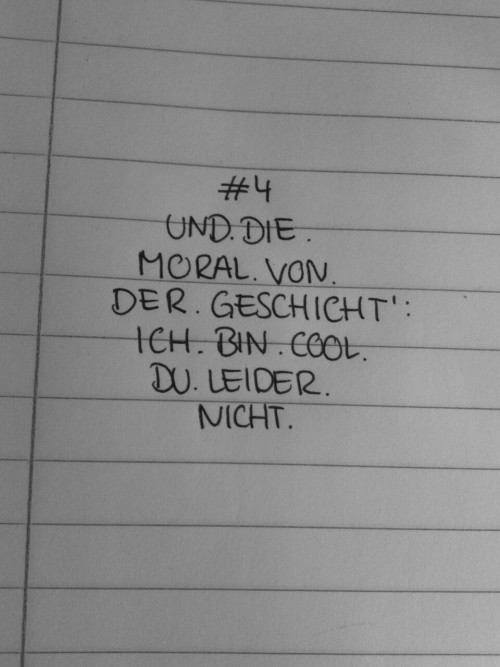 #4
UND.DIE.
MORAL.VON.
DER.GESCHICHT':
ICH.BIN.COOL.
DU.LEIDER.
NICHT.